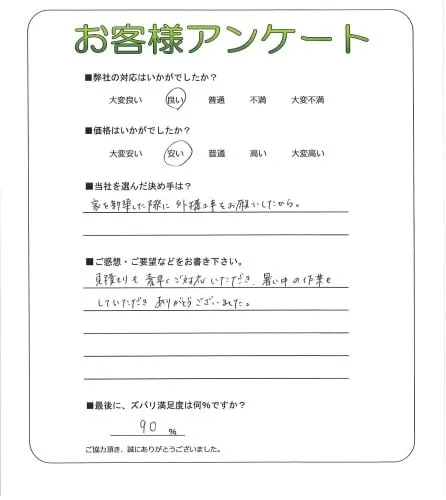 お客様アンケート
■弊社の対応はいかがでしたか?
大変良い 良い 普通 不満 大変不満
■価格はいかがでしたか?
大変安い 安い 普通 高い 大変高い
■当社を選んだ決め手は?
家を新築した際に外構工事もお願いしたから。
■ご感想・ご要望などをお書き下さい。
見積もりも素早くご対応いただき、暑い中の作業を
していただきありがとうございました。
■最後に、ズバリ満足度は何%ですか?
90 %
ご協力頂き、誠にありがとうございました。